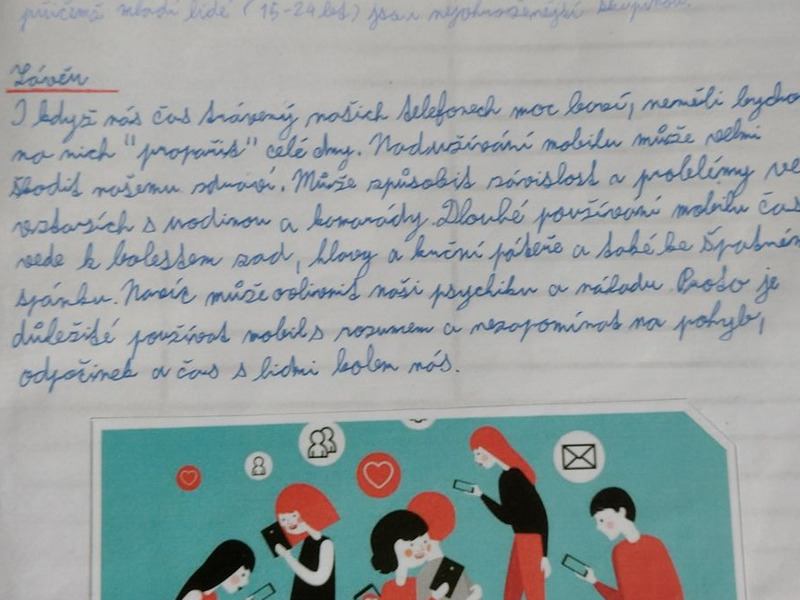 přičemž mladí lidé (15-24 let) jsou nejohroženější skupinou.
Závěr
I když nás čas trávený našich telefonech moc baví, neměli bycho
na nich "propařit" celé dny. Nadužívání mobilu může velmi
škodit našemu zdraví. Může způsobit závislost a problémy ve
vztazích s rodinou a kamarády. Dlouhé používání mobilu čas
vede k bolestem zad, hlavy a krční páteře a také ke špatném
spánku. Navíc může ovlivnit naši psychiku a náladu. Proto je
důležité používat mobil s rozumem a nezapomínat na pohyb,
odpočinek a čas s lidmi kolem nás.